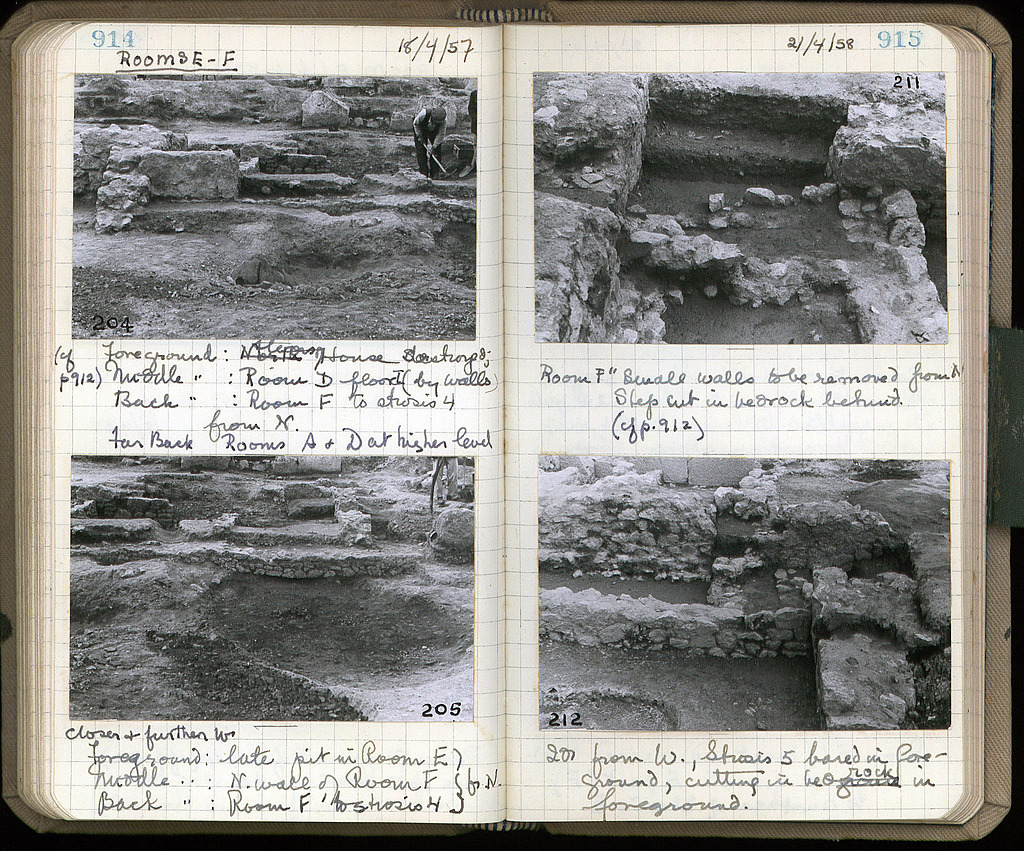 914
18/4/57
Rooms E-F
204
(cf Foreground: House destroyed;
p912) Middle " : Room D floor I (by walls)
Back " : Room F to strosis 4
from N.
Far Back Rooms A + D at higher level
205
Closer + further W.
Foreground: late pit in Room E
Middle " : N. wall of Room F } fr. N.
Back " : Room F to strosis 4
21/4/58
915
211
Room F " Small walls to be removed from N
Step cut in bedrock behind.
(cf p. 912)
212
from W., Strosis 5 bared in fore-
ground, cutting in bedrock in
foreground.